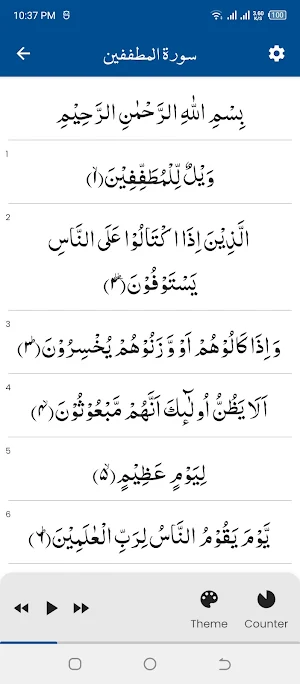 10:37 PM 3.60 K/S 100
سورة المطففين
بِسْمِ اللّٰهِ الرَّحْمٰنِ الرَّحِيْمِ
1
وَيْلٌ لِّلْمُطَفِّفِيْنَ(۱)ۙ
2
الَّذِيْنَ اِذَا اكْتَالُوْا عَلَى النَّاسِ
يَسْتَوْفُوْنَ(۲)ؗۖ
3
وَ اِذَا كَالُوْهُمْ اَوْ وَّ زَنُوْهُمْ يُخْسِرُوْنَ(۳)ؕ
4
اَلَا يَظُنُّ اُولٰٓىٕكَ اَنَّهُمْ مَّبْعُوْثُوْنَ(۴)ۙ
5
لِيَوْمٍ عَظِيْمٍ(۵)ۙ
6
یَّوْمَ يَقُوْمُ النَّاسُ لِرَبِّ الْعٰلَمِيْنَ(۶)ؕ
Theme Counter